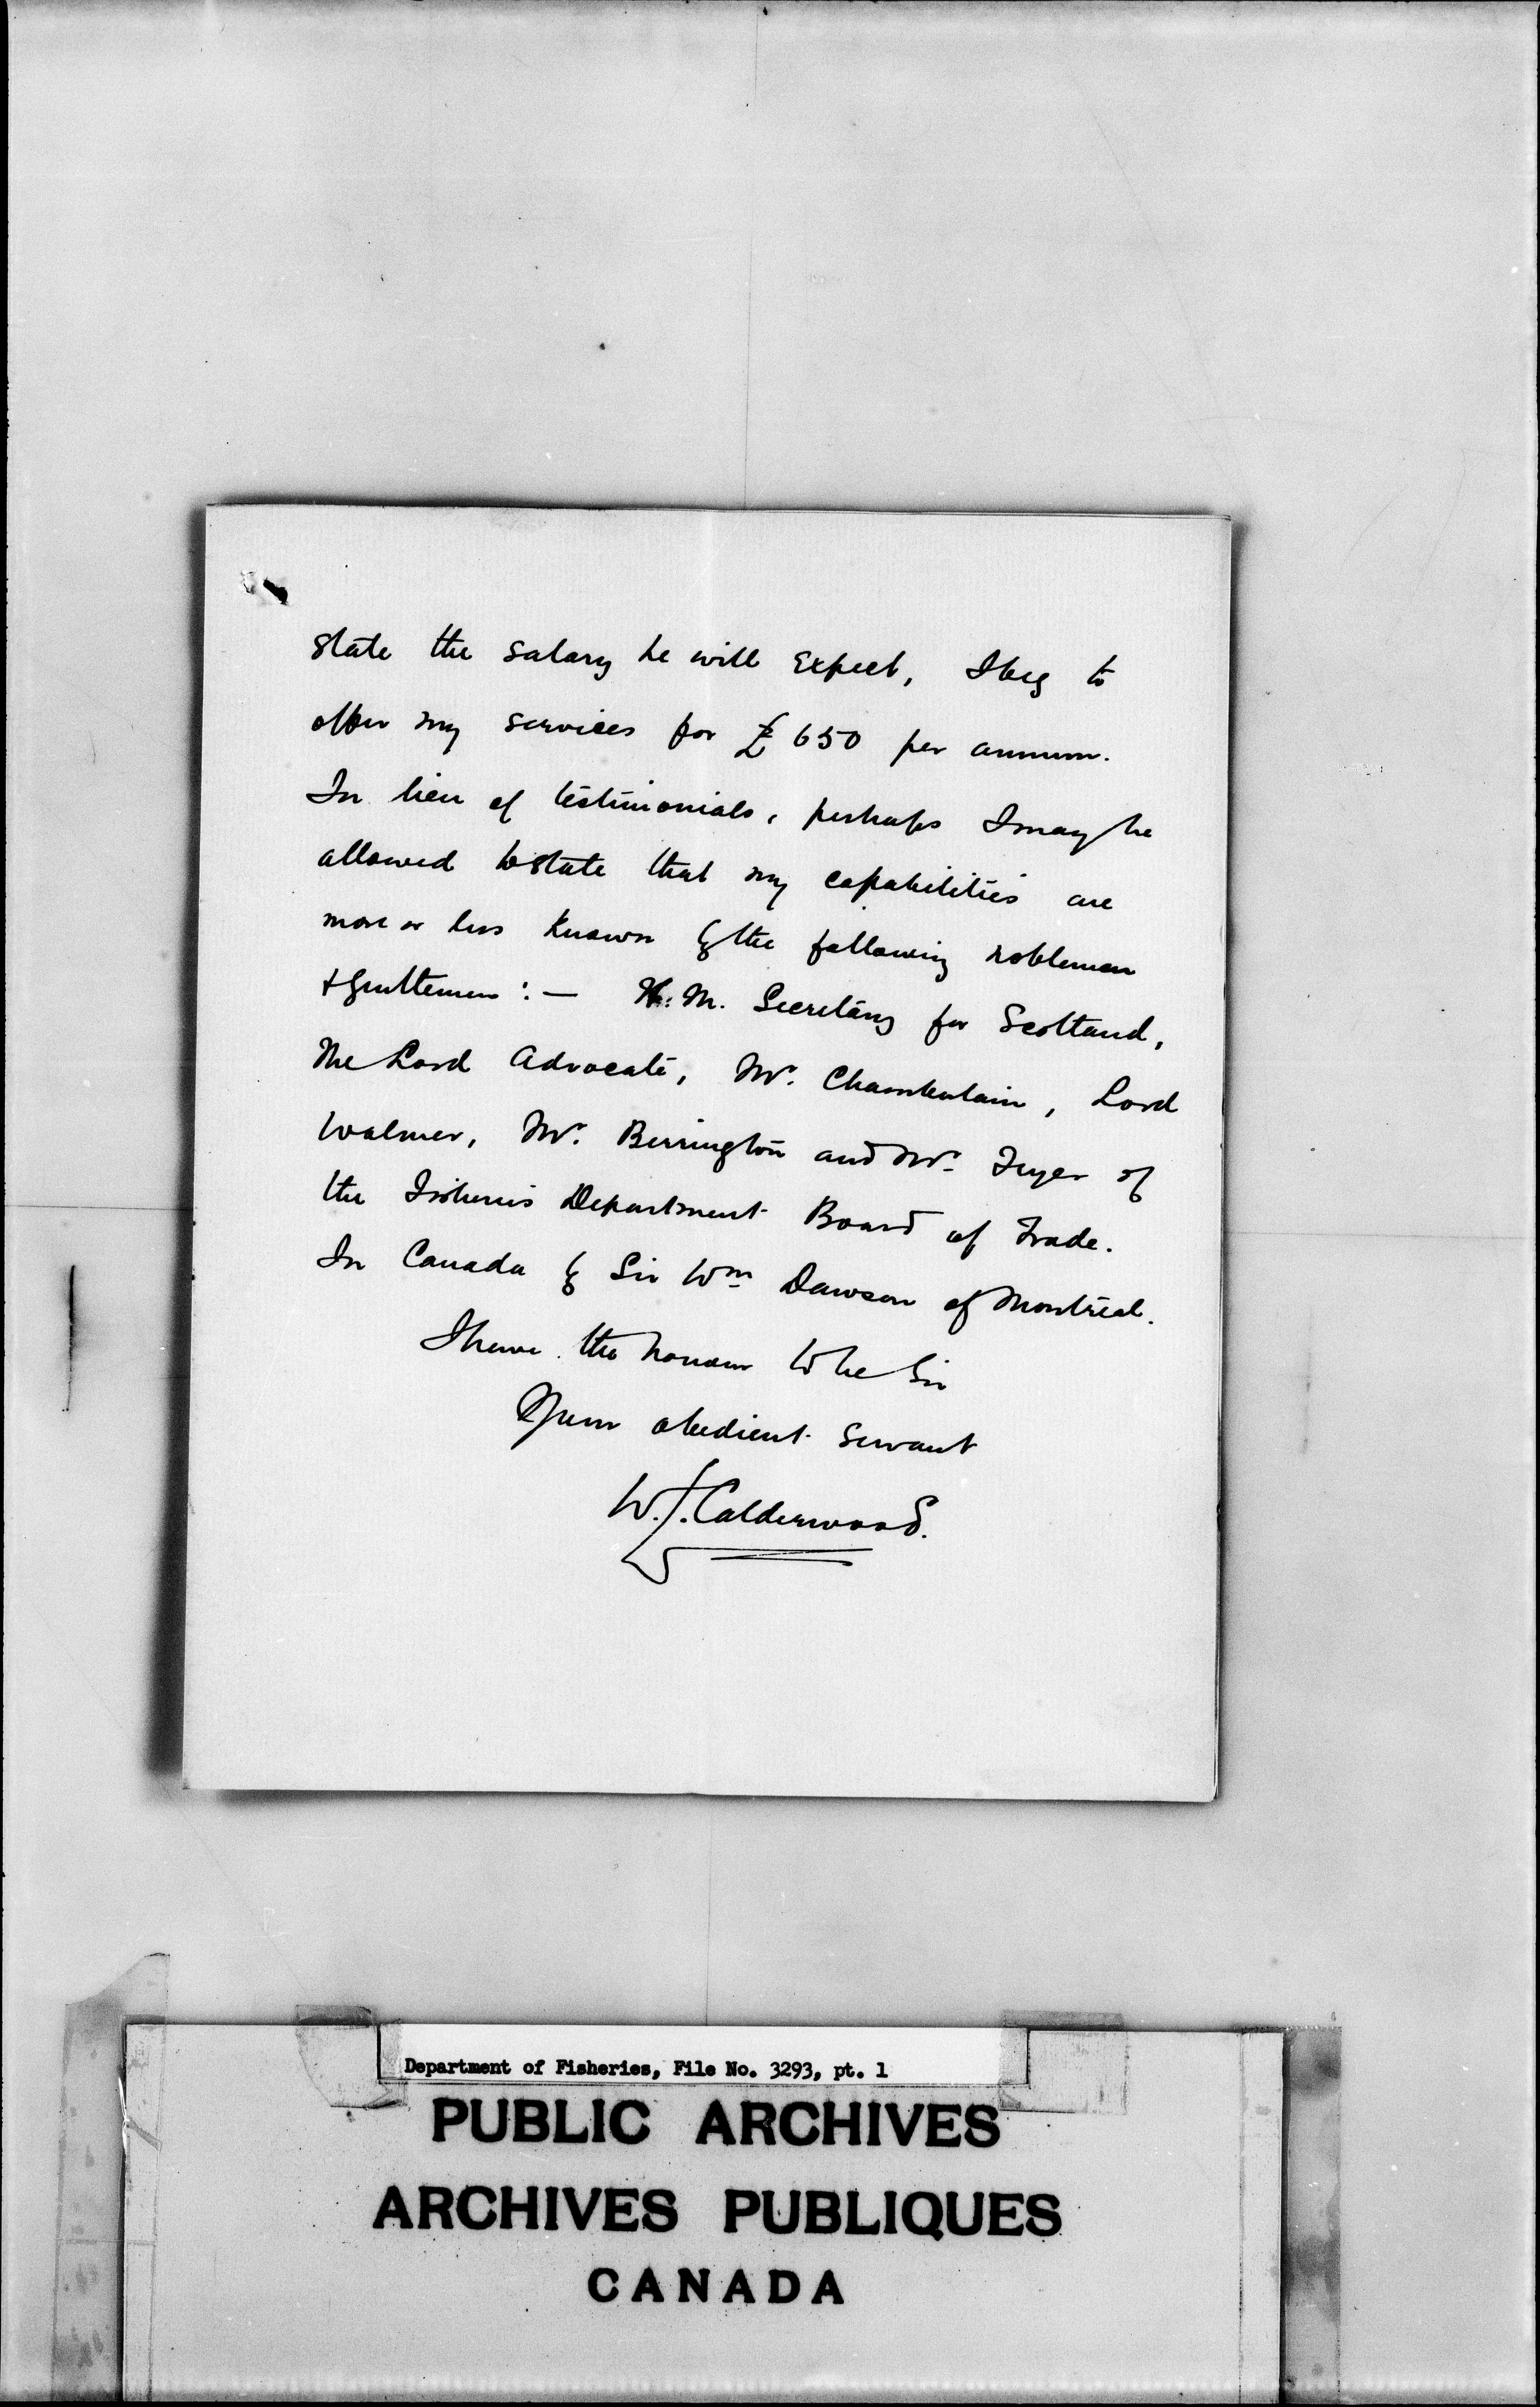 state the salary he will expect, I beg to
offer my services for £650 per annum.
In lieu of testimonials, perhaps I may be
allowed to state that my capabilities are
more or less known by the following nobleman
& gentlemen :— H.M. Secretary for Scotland,
The Lord Advocate, Mr. Chamberlain, Lord
Walmer, Mr. Berrington and Mr. Fryer of
the Fisheries Department Board of Trade.
In Canada by Sir Wm Dawson of Montreal.
I have the honour to be Sir
Your obedient servant
W.J. Calderwood.
Department of Fisheries, File No. 3293, pt. 1
PUBLIC ARCHIVES
ARCHIVES PUBLIQUES
CANADA